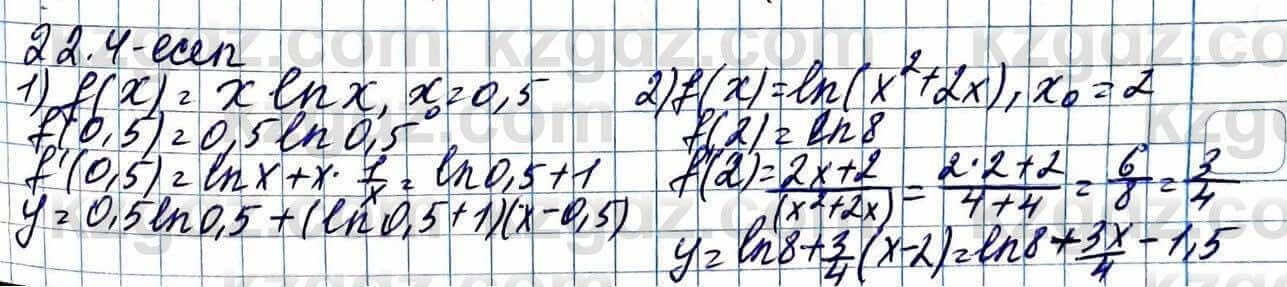 22.4-есеп
1) f(x) = x ln x, x₀ = 0,5
f(0,5) = 0,5 ln 0,5
f'(0,5) = ln x + x · 1/x = ln 0,5 + 1
y = 0,5 ln 0,5 + (ln 0,5 + 1)(x - 0,5)
2) f(x) = ln(x² + 2x), x₀ = 2
f(2) = ln 8
f'(2) = (2x + 2)/(x² + 2x) = (2 · 2 + 2)/(4 + 4) = 6/8 = 3/4
y = ln 8 + 3/4 (x - 2) = ln 8 + 3x/4 - 1,5
kzgdz.com